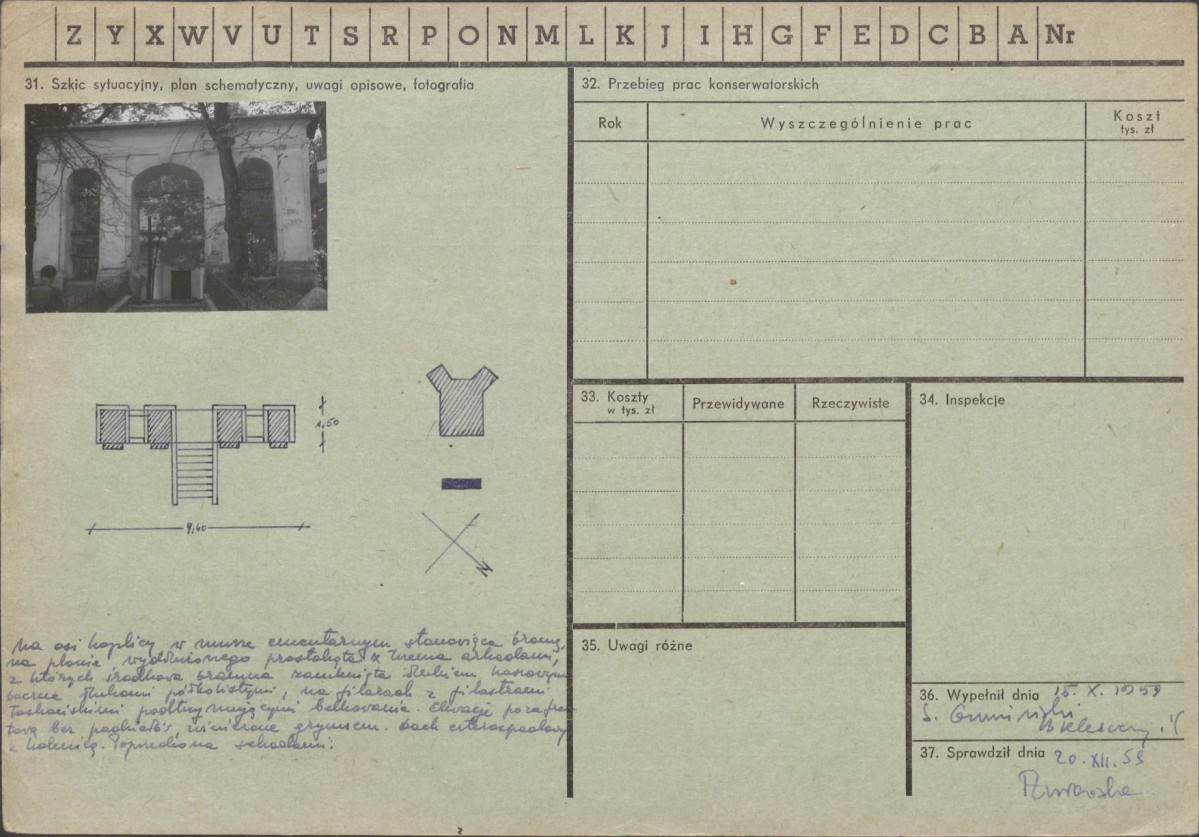 Z Y X W V U T S R P O N M L K J I H G F E D C B A Nr
31. Szkic sytuacyjny, plan schematyczny, uwagi opisowe, fotografia
1,50
9,40
N
na osi kaplicy w murze cmentarnym stanowiąca bramę,
na planie wydłużonego prostokąta z trzema arkadami,
z których środkowa bramna zamknięta łukiem koszowym
boczne łukami półkolistymi, na filarach z pilastrami
toskańskimi podtrzymującymi belkowanie. Elewacje poza fron
tową bez podziałów, zwieńczone gzymsem. Dach czterospadowy
z kalenicą. Poprzedzona schodami.
32. Przebieg prac konserwatorskich
Rok
Wyszczególnienie prac
Koszt
tys. zł
33. Koszty
w tys. zł
Przewidywane
Rzeczywiste
34. Inspekcje
35. Uwagi różne
36. Wypełnił dnia 15. X. 1959
S.
37. Sprawdził dnia 20. XII. 59
2